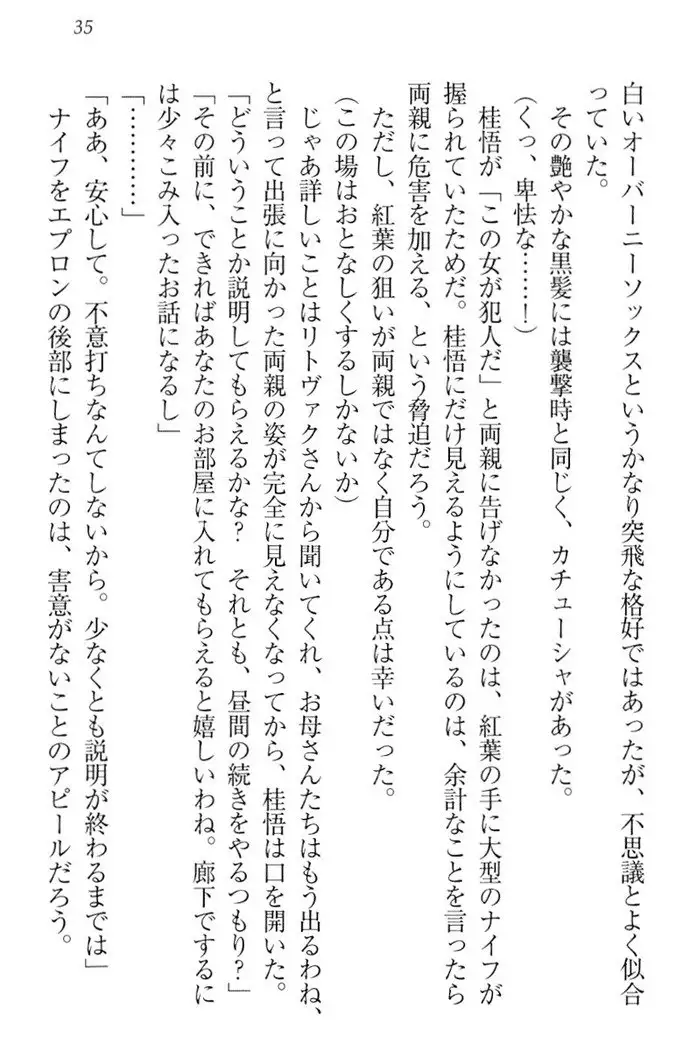 35
白いオーバーニーソックスというかなり突飛な格好ではあったが、不思議とよく似合
っていた。
その艶やかな黒髪には襲撃時と同じく、カチューシャがあった。
(くっ、卑怯な……!)
桂悟が「この女が犯人だ」と両親に告げなかったのは、紅葉の手に大型のナイフが
握られていたためだ。桂悟にだけ見えるようにしているのは、余計なことを言ったら
両親に危害を加える、という脅迫だろう。
ただし、紅葉の狙いが両親ではなく自分である点は幸いだった。
(この場はおとなしくするしかないか)
じゃあ詳しいことはリトヴァクさんから聞いてくれ、お母さんたちはもう出るわね、
と言って出張に向かった両親の姿が完全に見えなくなってから、桂悟は口を開いた。
「どういうことか説明してもらえるかな? それとも、昼間の続きをやるつもり?」
「その前に、できればあなたのお部屋に入れてもらえると嬉しいわね。廊下でするに
は少々こみ入ったお話になるし」
「…………」
「ああ、安心して。不意打ちなんてしないから。少なくとも説明が終わるまでは」
ナイフをエプロンの後部にしまったのは、害意がないことのアピールだろう。